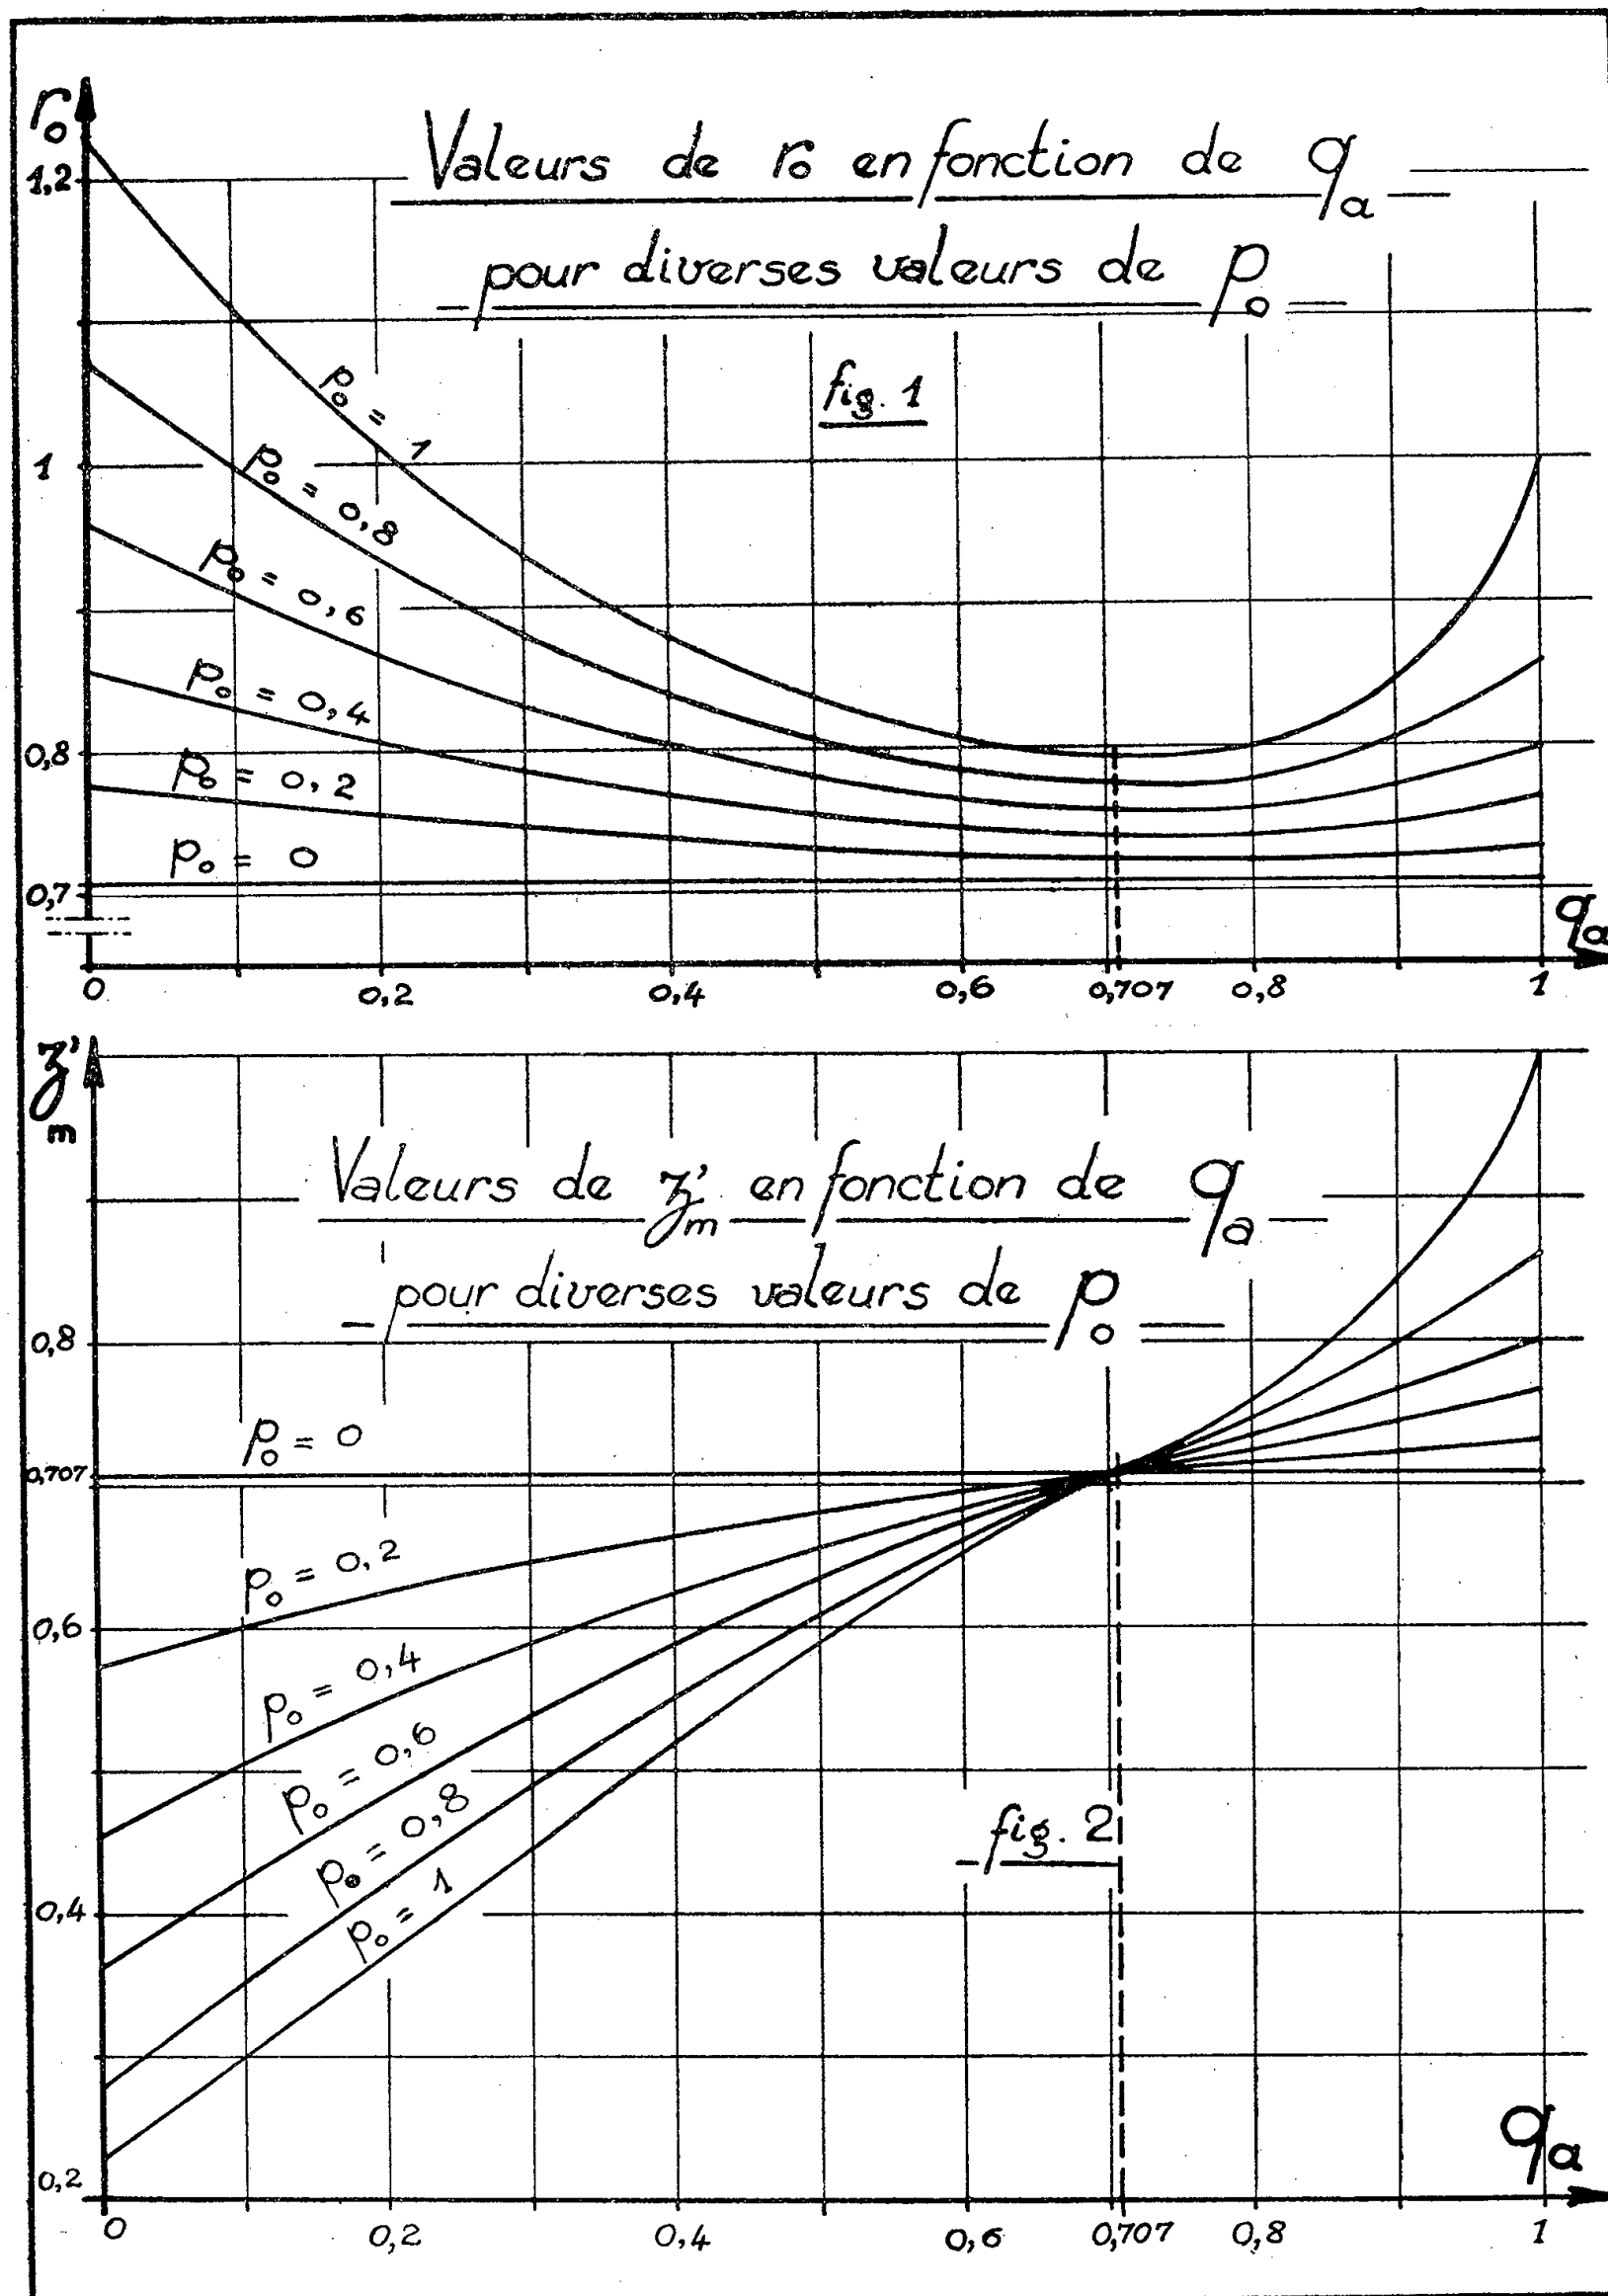 r₀
Valeurs de r₀ en fonction de qₐ
pour diverses valeurs de p₀
fig. 1
1,2
1
0,8
0,7
p₀ = 1
p₀ = 0,8
p₀ = 0,6
p₀ = 0,4
p₀ = 0,2
p₀ = 0
qₐ
0 0,2 0,4 0,6 0,707 0,8 1
z'm
Valeurs de z'm en fonction de qₐ
pour diverses valeurs de p₀
0,8
0,707
0,6
0,4
0,2
p₀ = 0
p₀ = 0,2
p₀ = 0,4
p₀ = 0,6
p₀ = 0,8
p₀ = 1
fig. 2
qₐ
0 0,2 0,4 0,6 0,707 0,8 1